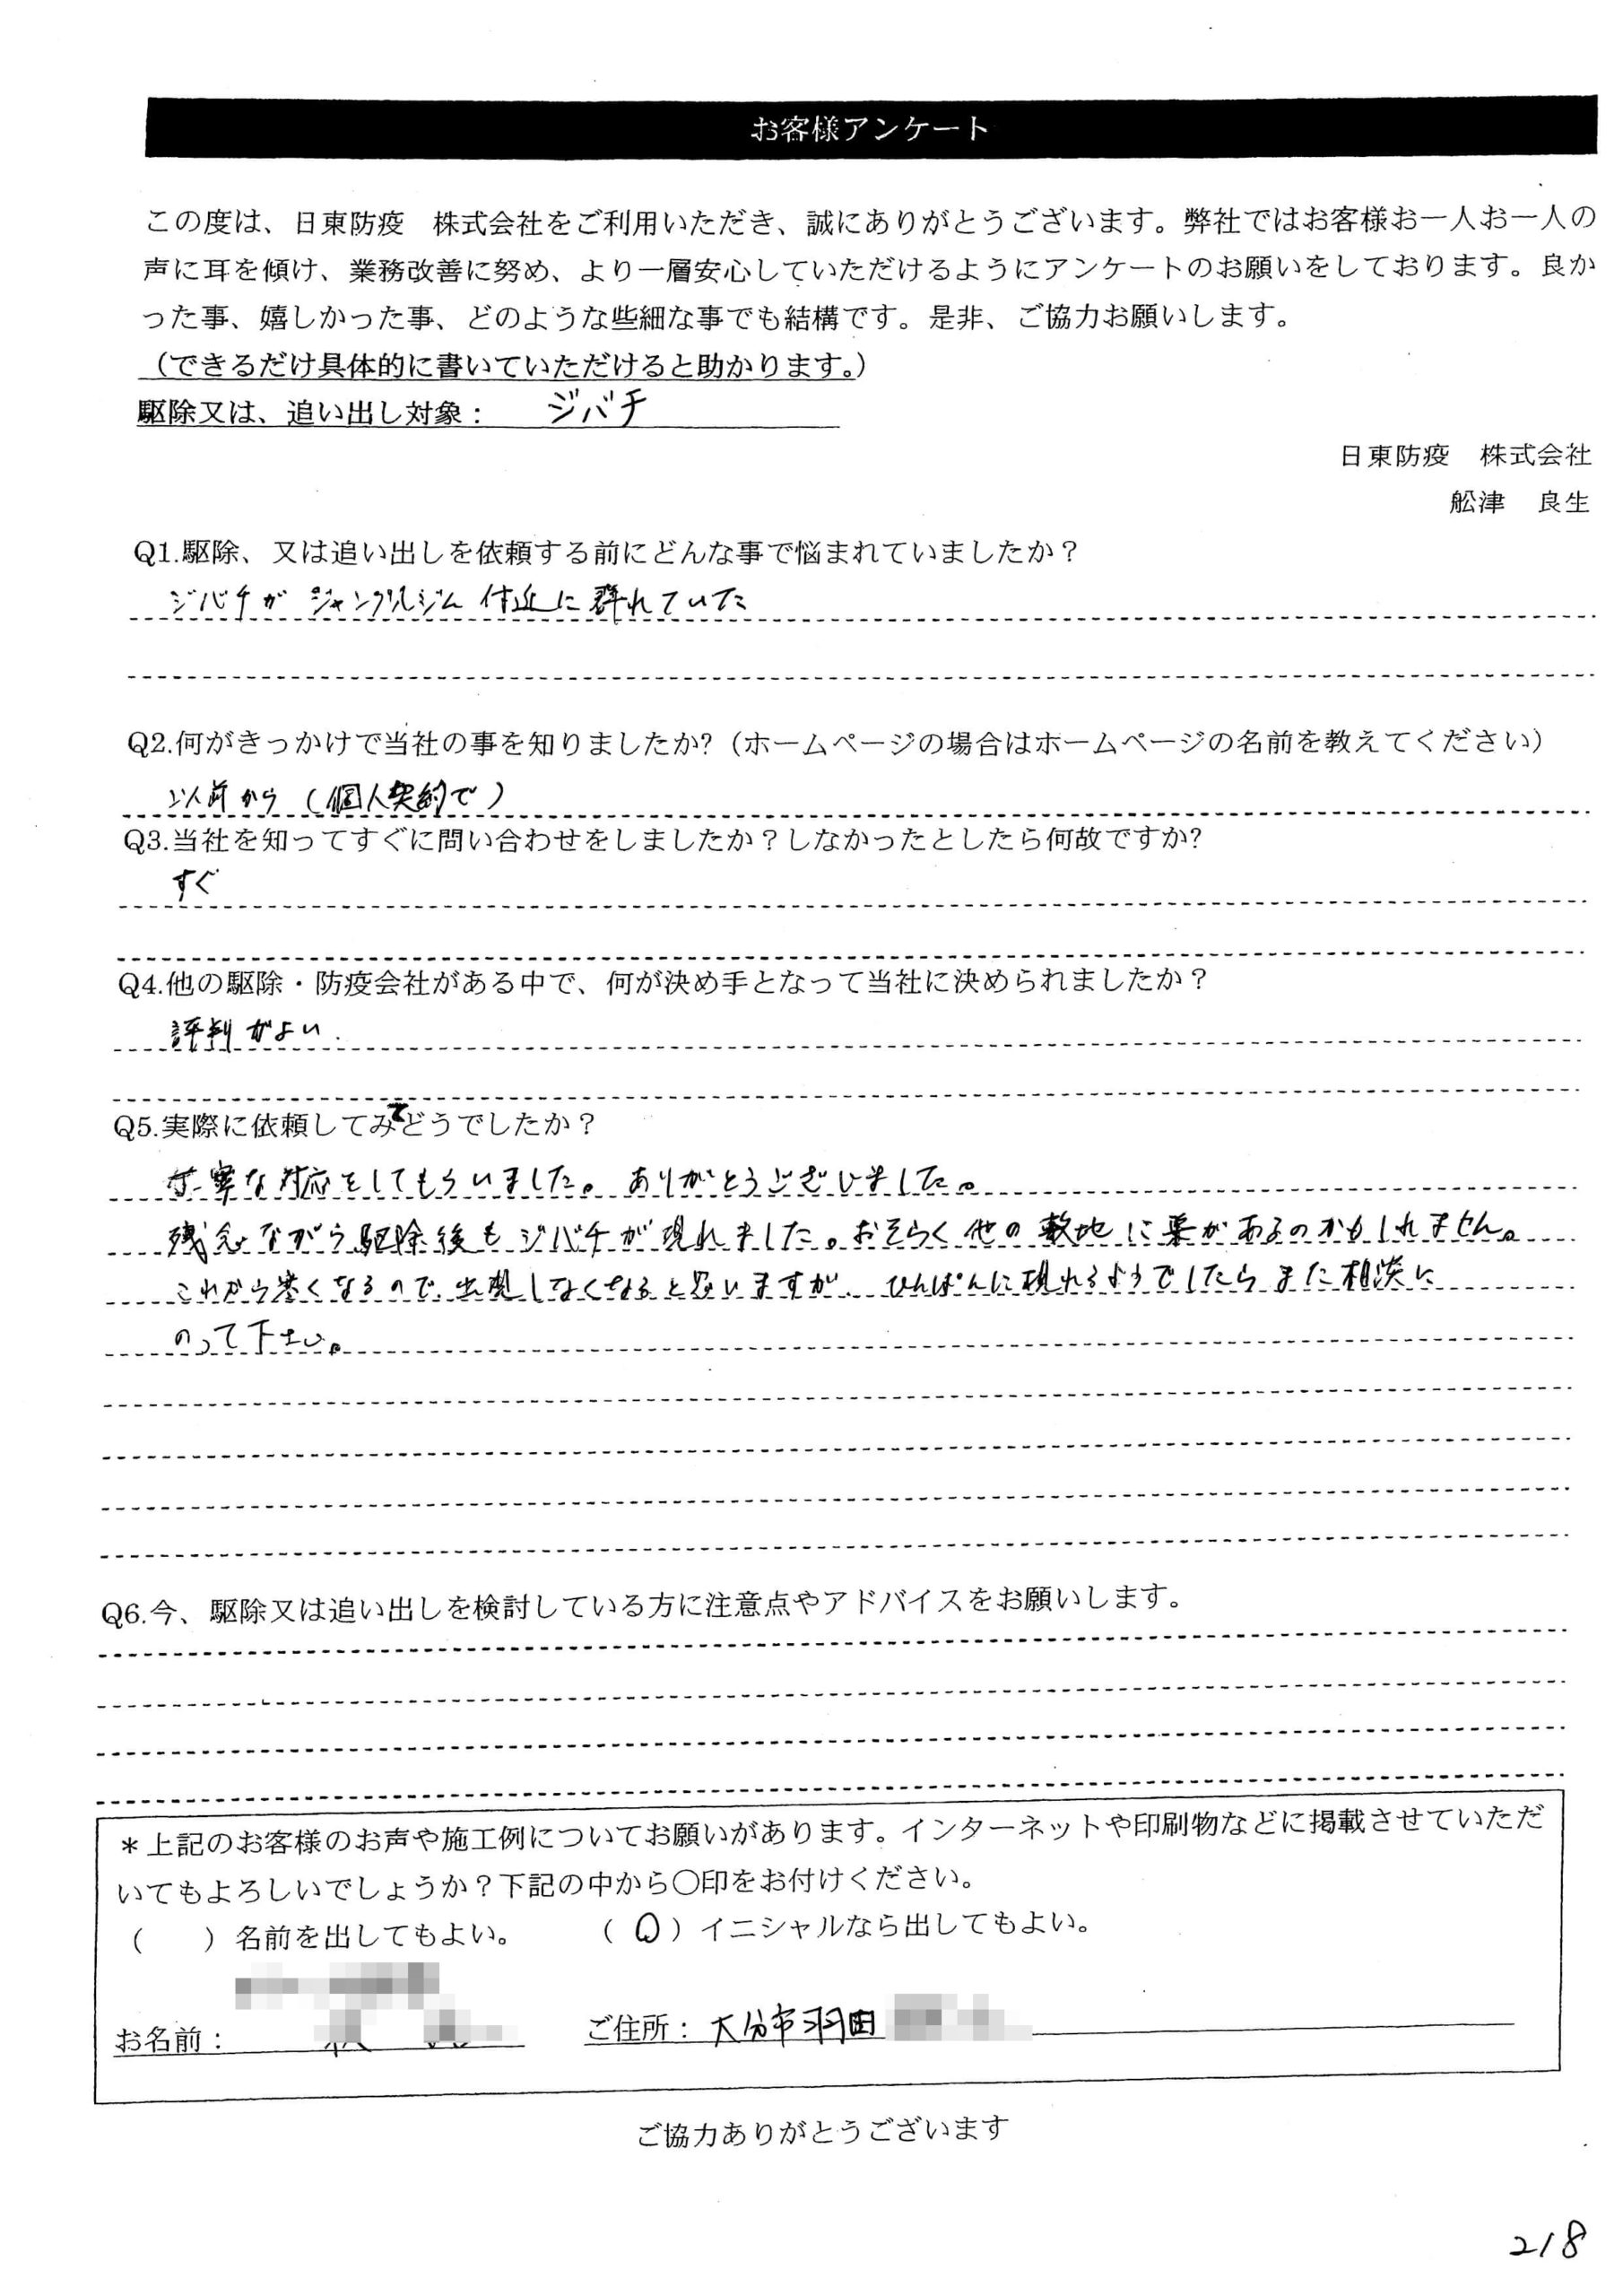 お客様アンケート
この度は、日東防疫　株式会社をご利用いただき、誠にありがとうございます。弊社ではお客様お一人お一人の
声に耳を傾け、業務改善に努め、より一層安心していただけるようにアンケートのお願いをしております。良か
った事、嬉しかった事、どのような些細な事でも結構です。是非、ご協力お願いします。
（できるだけ具体的に書いていただけると助かります。）
駆除又は、追い出し対象： ジバチ
日東防疫　株式会社
舩津　良生
Q1.駆除、又は追い出しを依頼する前にどんな事で悩まれていましたか？
ジバチが ジャングルジム 付近に群れていた
Q2.何がきっかけで当社の事を知りましたか?（ホームページの場合はホームページの名前を教えてください）
以前から（個人契約で）
Q3.当社を知ってすぐに問い合わせをしましたか？しなかったとしたら何故ですか?
すぐ
Q4.他の駆除・防疫会社がある中で、何が決め手となって当社に決められましたか？
評判がよい.
Q5.実際に依頼してみてどうでしたか？
丁寧な対応をしてもらいました。ありがとうございました。
残念ながら駆除後もジバチが現れました。おそらく他の敷地に巣があるのかもしれません。
これから寒くなるので、出現しなくなると思いますが、ひんぱんに現れるようでしたらまた相談に
のって下さい。
Q6.今、駆除又は追い出しを検討している方に注意点やアドバイスをお願いします。
＊上記のお客様のお声や施工例についてお願いがあります。インターネットや印刷物などに掲載させていただ
いてもよろしいでしょうか？下記の中から〇印をお付けください。
（　　）名前を出してもよい。　　（〇）イニシャルなら出してもよい。
お名前：　　ご住所：大分市羽田
ご協力ありがとうございます
218